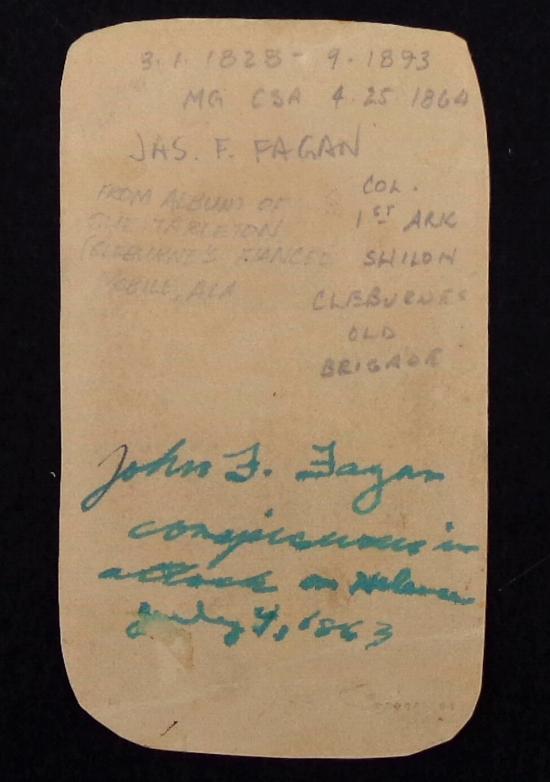 3. 1. 1828 - 9. 1893
MG CSA 4. 25 1864
JAS. F. FAGAN
FROM ALBUM OF
SUE TARLETON
(CLEBURNE'S FIANCEE
MOBILE, ALA
COL.
1ST ARK
SHILOH
CLEBURNES
OLD
BRIGADE
John F. Fagan
conspicuous in
attack on Helena
July 4, 1863